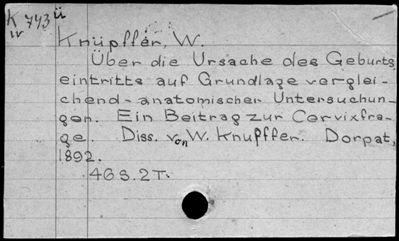 K 443ü
IV
Knüpffer, W.
Über die Ursache des Geburts
eintritts auf Grundlage verglei-
chend-anatomischer Untersuchun-
gen. Ein Beitrag zur Cervixfra-
ge. Diss. von W. Knupffer. Dorpat,
1892.
46 S. 2 T.